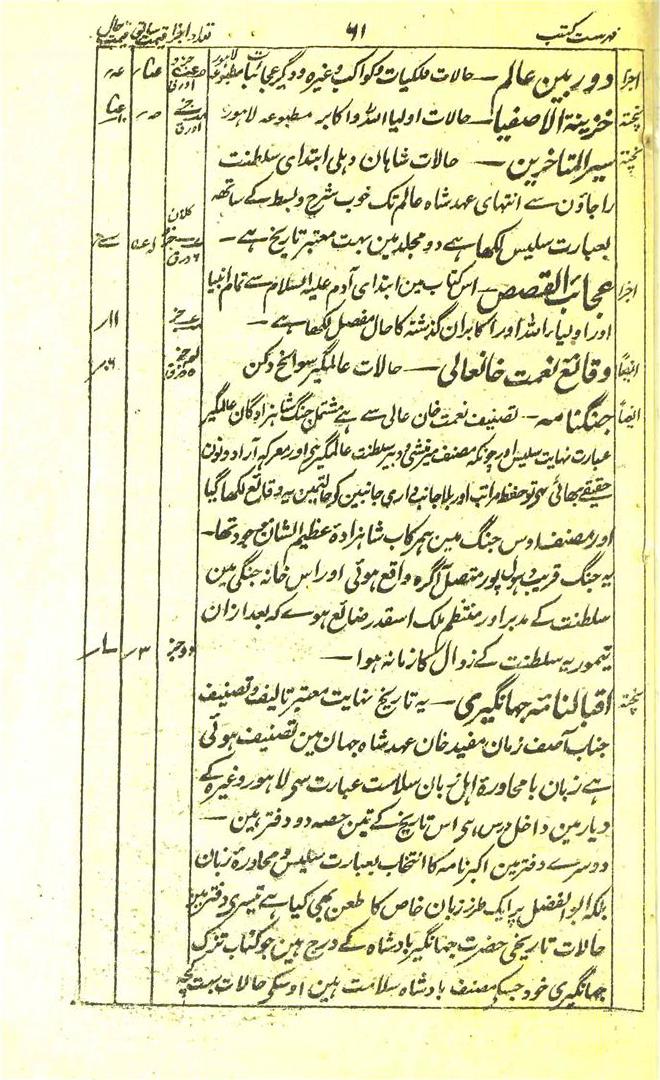 فہرست کتب ۶۱ تعداد اجزا قیمت سابق قیمت حال
اجزا دوربین عالم — حالات فلکیات و کواکب وغیرہ و دیگر عجائبات مطبوعہ لاہور
پختہ خزینۃ الاصفیا — حالات اولیا اللہ و اکابر مطبوعہ لاہور
پختہ سیر المتاخرین — حالات شاہان دہلی ابتدای سلطنت
راجاؤن سے انتہای عہد شاہ عالم تک خوب شرح و بسط کے ساتھہ
بعبارت سلیس لکھا ہے دو مجلد مین بہت معتبر تاریخ ہے —
اجزا عجائب القصص — اس کتاب مین ابتدای آدم علیہ السلام سے تمام انبیا
اور اولیاء اللہ اور اکابران گذشتہ کا حال مفصل لکھا ہے — ۱۱؍
ایضاً وقائع نعمت خانعالی — حالات عالمگیر سوانح دکن
ایضاً جنگنامہ — تصنیف نعمت خان عالی سے ہے مشتمل جنگ شاہزادگان عالمگیر
عبارت نہایت سلیس اور چونکہ مصنف میر منشی و دبیر سلطنت عالمگیری اور معرکہ آرا دونون
حقیقے بھائی تھی تو حفظ مراتب اور بلا جانبداری جانبین کو حالتمین یہ وقائع لکھا گیا
اور مصنف اوس جنگ مین ہمرکاب شاہزادۂ عظیم الشان موجود تھا —
یہ جنگ قریب دہول پور متصل آگرہ واقع ہوئی اور اس خانہ جنگی مین
سلطنت کے مدبر اور منتظم ملک اسقدر ضائع ہوے کہ بعد ازان
تیموریہ سلطنت کے زوال کا زمانہ ہوا — دو جز ۳؍
پختہ اقبالنامہ جہانگیری — یہ تاریخ نہایت معتبر تالیف و تصنیف
جناب آصف زمان مفید خان عہد شاہ جہان مین تصنیف ہوئی
ہے زبان با محاورۂ اہل زبان سلاست عبارت سی لاہور وغیرہ کے
دیار مین داخل درس ہی اس تاریخ کے تین حصہ دو دفتر ہین —
دوسرے دفتر مین اکبر نامہ کا انتخاب بعبارت سلیس و محاورۂ زبان
بلکہ ابو الفضل پر ایک طرز زبان خاص کا طعن بھی کیا ہے تیسری دفتر مین
حالات تاریخی حضرت جہانگیر بادشاہ کے درج ہین جو کتاب تزک
جہانگیری خود جسکے مصنف بادشاہ سلامت ہین اوسکی حالات بہت کچہ